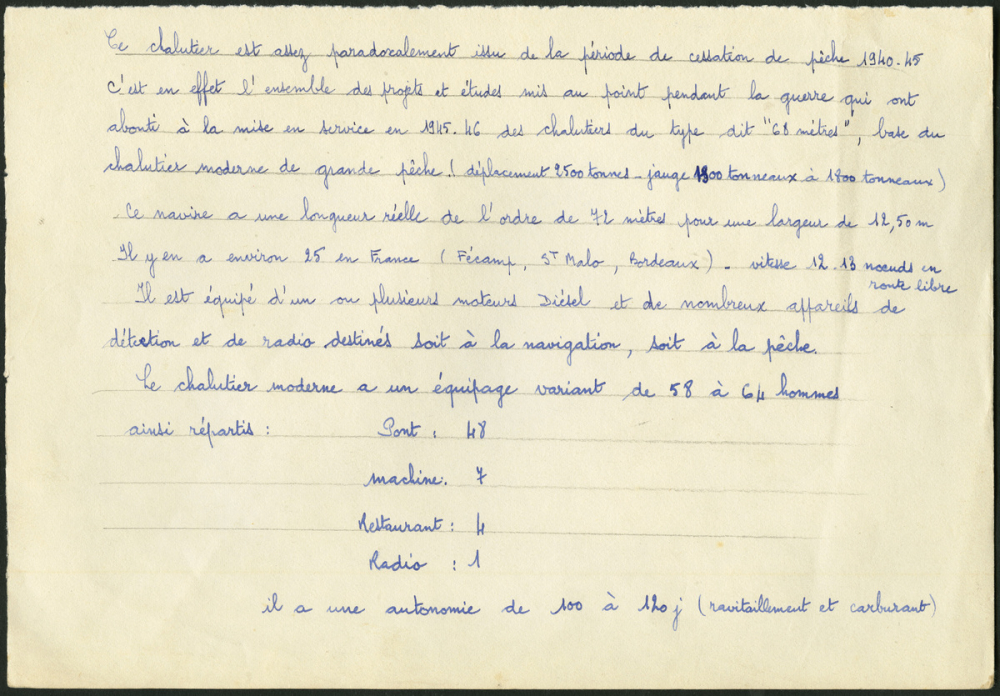 Ce chalutier est assez paradoxalement issu de la période de cessation de pêche 1940-45
C'est en effet l'ensemble des projets et études mis au point pendant la guerre qui ont
abouti à la mise en service en 1945-46 des chalutiers du type dit "68 mètres", base du
chalutier moderne de grande pêche! (déplacement 2500 tonnes - jauge 1300 tonneaux à 1800 tonneaux)
Ce navire a une longueur réelle de l'ordre de 72 mètres pour une largeur de 12,50 m
Il y en a environ 25 en France (Fécamp, St Malo, Bordeaux) - vitesse 12-13 nœuds en
route libre
Il est équipé d'un ou plusieurs moteurs Diésel et de nombreux appareils de
détection et de radio destinés soit à la navigation, soit à la pêche.
Le chalutier moderne a un équipage variant de 58 à 64 hommes
ainsi répartis : Pont : 48
machine. 7
Restaurant : 4
Radio : 1
il a une autonomie de 100 à 120 j (ravitaillement et carburant)